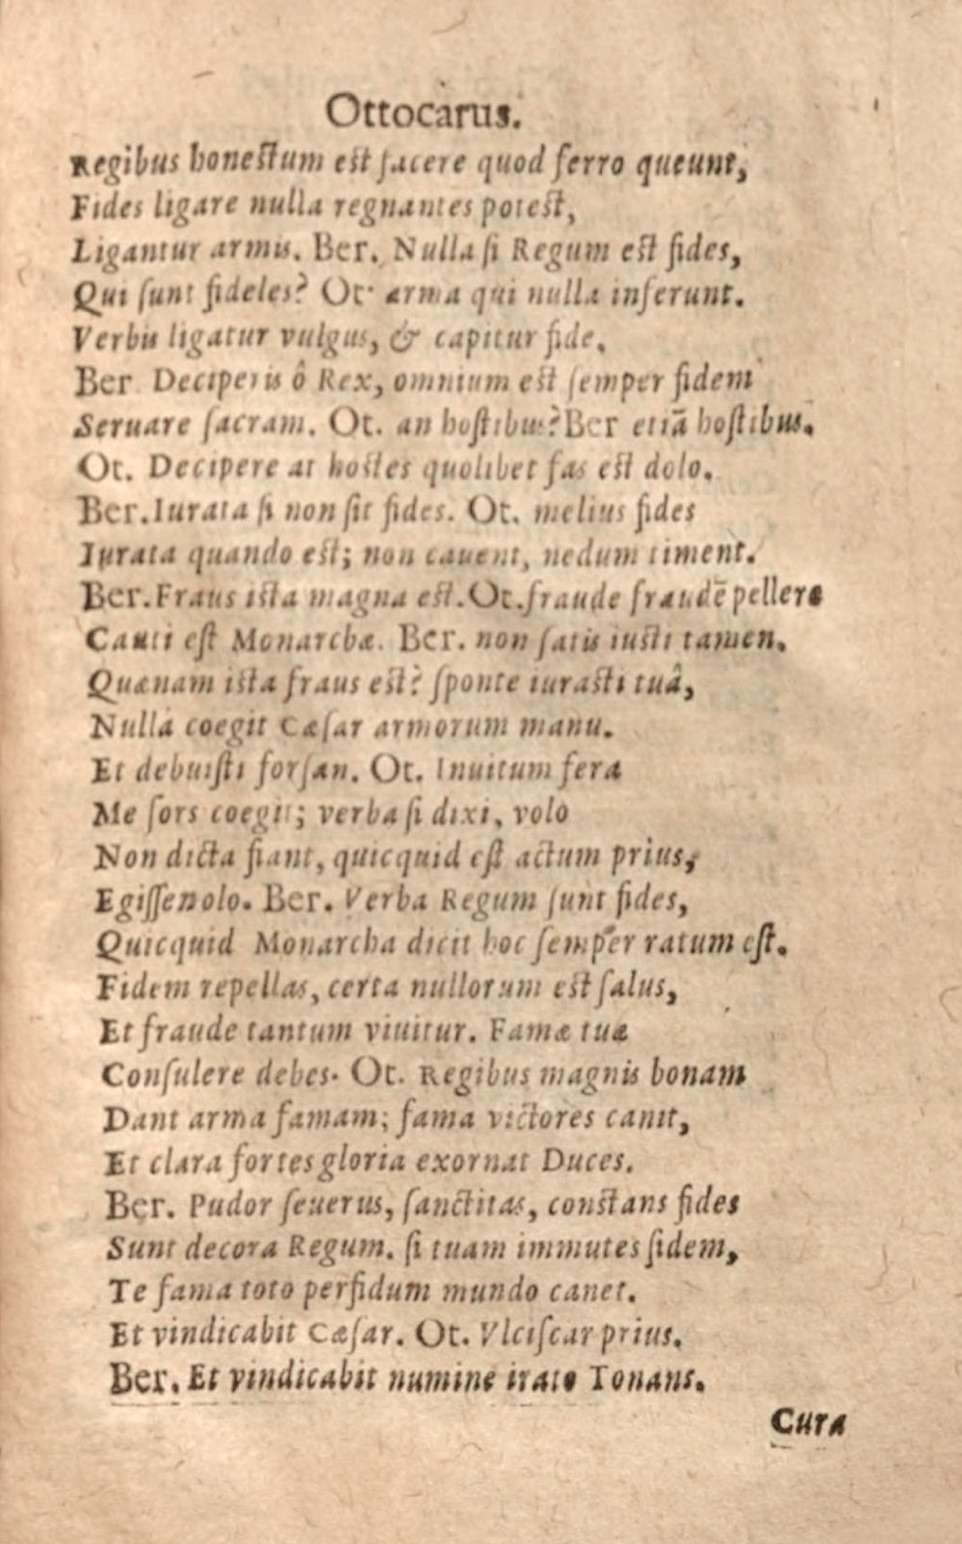 Ottocarus.
Regibus honestum est facere quod ferro queunt,
Fides ligare nulla regnantes potest,
Ligantur armis. Ber. Nulla si Regum est fides,
Qui sunt fideles? Ot. arma qui nulla inferunt.
Verbis ligatur vulgus, & capitur fide.
Ber. Deciperis ô Rex, omnium est semper fidem
Seruare sacram. Ot. an hostibus? Ber etiã hostibus.
Ot. Decipere at hostes quolibet fas est dolo.
Ber. Iurata si non sit fides. Ot. melius fides
Iurata quando est; non cauent, nedum timent.
Ber. Fraus ista magna est. Ot. fraude fraudẽ pellere
Cauti est Monarchæ. Ber. non satis iusti tamen.
Quænam ista fraus est? sponte iurasti tuâ,
Nulla coegit Cæsar armorum manu.
Et debuisti forsan. Ot. Inuitum fera
Me sors coegit; verba si dixi, volo
Non dicta fiant, quicquid est actum prius,
Egisse nolo. Ber. Verba Regum sunt fides,
Quicquid Monarcha dicit hoc semper ratum est.
Fidem repellas, certa nullorum est salus,
Et fraude tantum viuitur. Famæ tuæ
Consulere debes. Ot. Regibus magnis bonam
Dant arma famam; fama victores canit,
Et clara fortes gloria exornat Duces.
Ber. Pudor seuerus, sanctitas, constans fides
Sunt decora Regum. si tuam immutes fidem,
Te fama toto perfidum mundo canet.
Et vindicabit Cæsar. Ot. Vlciscar prius.
Ber. Et vindicabit numine irato Tonans.
Cura